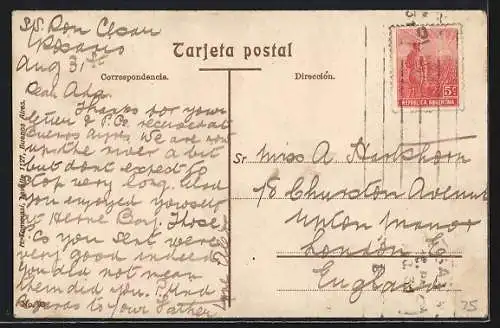 Tarjeta postal
Correspondencia.
Dirección.
S/S. Ron Clean
Rosario
Aug 31st
Dear Ada,
Thanks for your
letter & P.C. received at
Buenos Ayres. We are now
up the river a bit
but dont expect to
stop very long. Glad
you enjoyed yourself
at Herne Bay. Those
P.Cs you sent were
very good indeed
you did not mean
them did you. Kind
regards to your Father
Sr Miss A
18 Churston Avenue
Upton Manor
London
England
5c
REPUBLICA ARGENTINA
Buenos Aires.
75